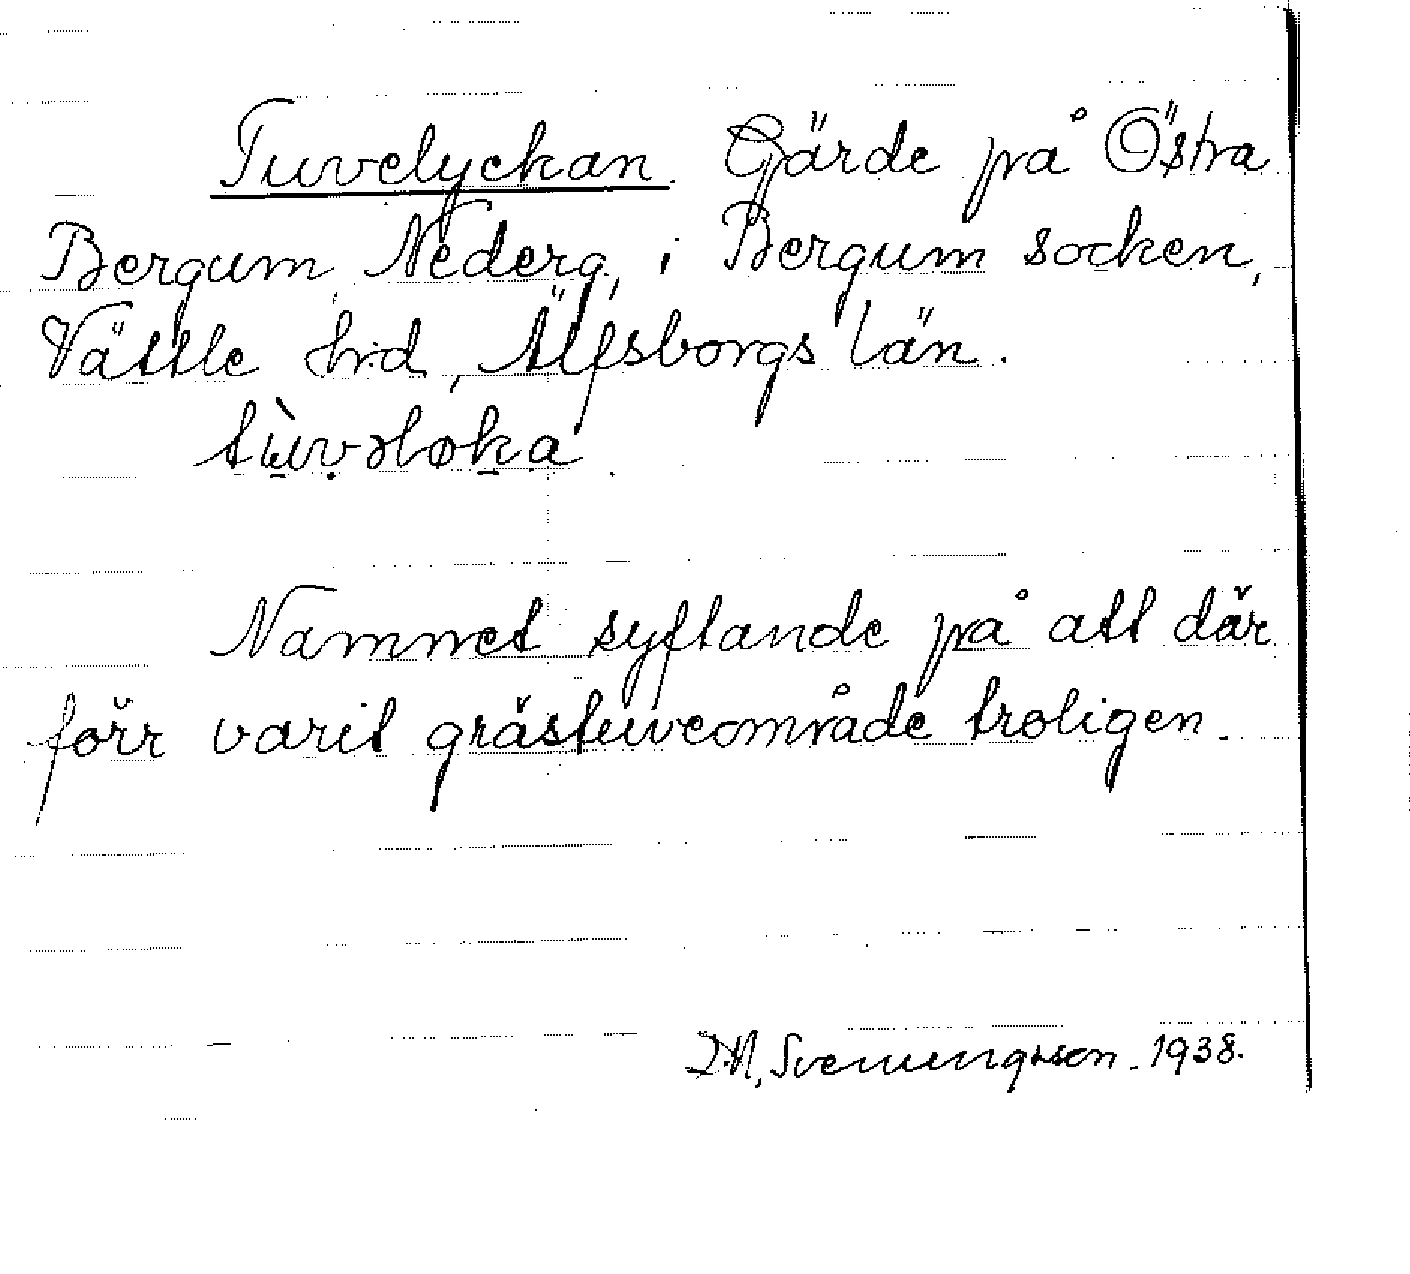 Tuvelyckan. Gärde på Östra
Bergum, Nederg, i Bergum socken,
Vättle hrd, Älfsborgs län.
tu̠̇vəløka
Namnet syftande på att där
förr varit grästuveområde troligen.
Svenungsson. 1938.